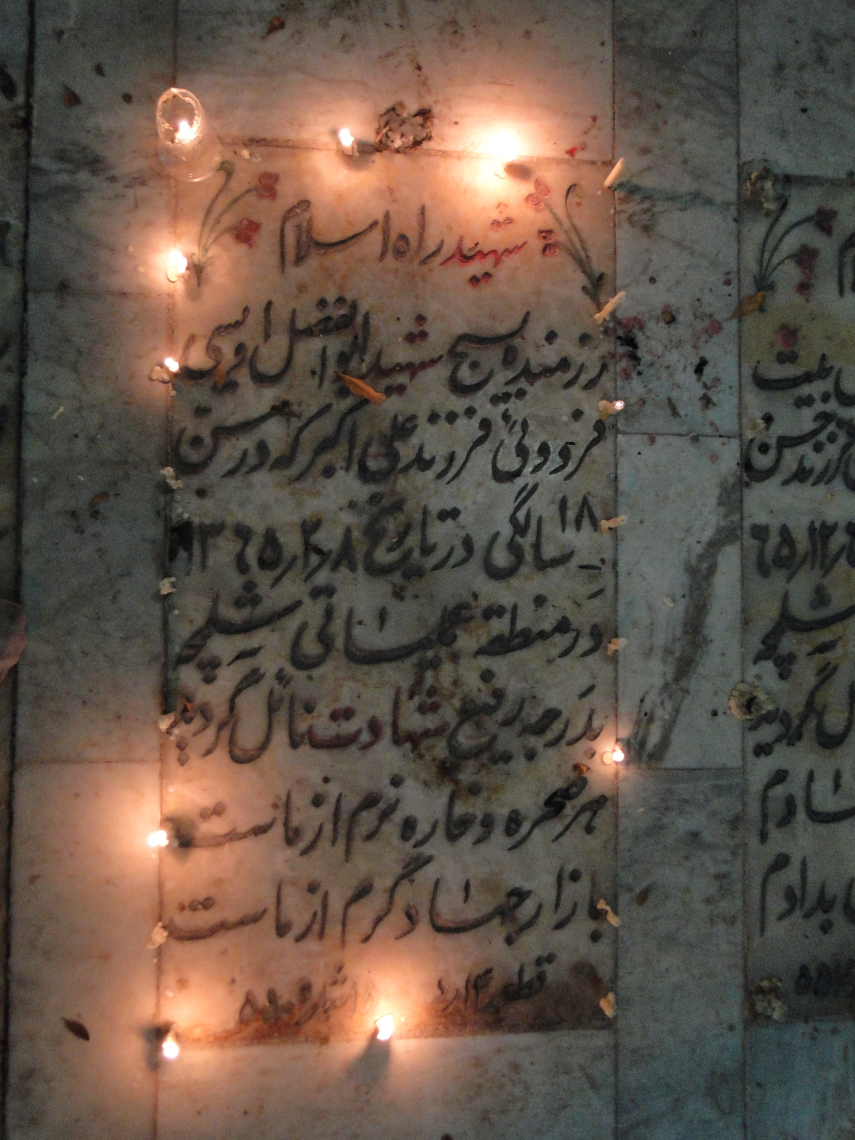 شهید راه اسلام
رزمنده بسیج شهید ابوالفضل اویسی
فردوئی فرزند علی اکبر که در سن
۱۸ سالگی در تاریخ ۸ر۲ر۱۳٦۵
در منطقه عملیاتی شلمچه
بدرجه رفیع شهادت نائل گردید
هر صخره و خاره نرم از ماست
بازار جهاد گرم از ماست
قطعه
بیت
فرزند حسن
٦۵ر۱۲ر
شلمچه
گردید
بدادم